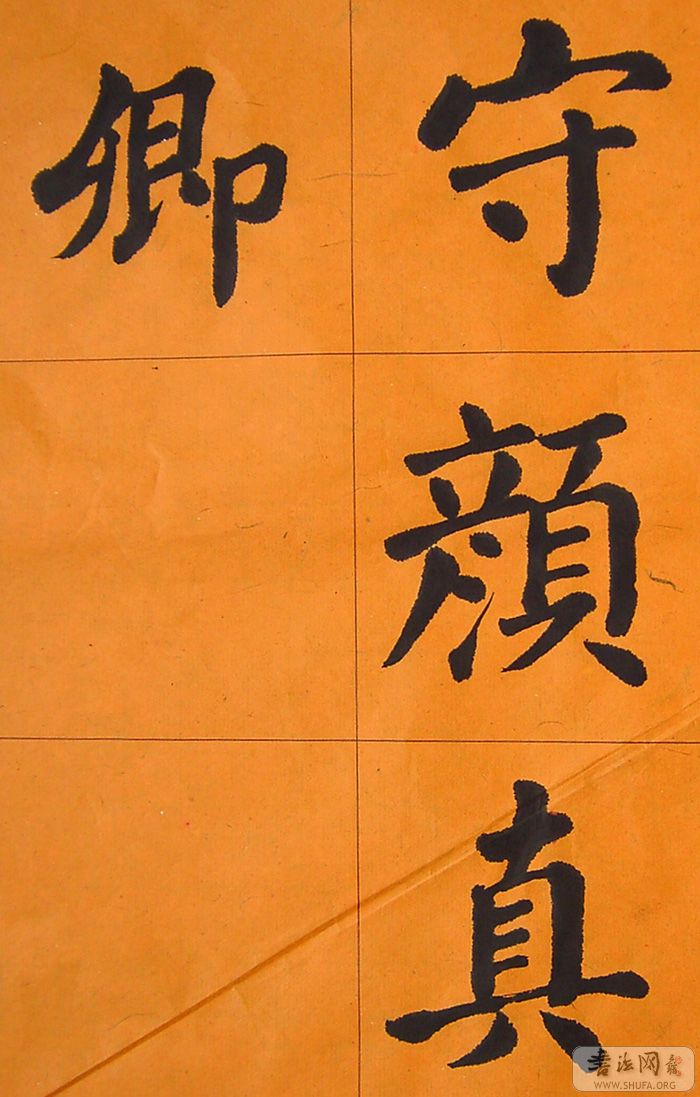 守顏真
卿
書法网
WWW.SHUFA.ORG